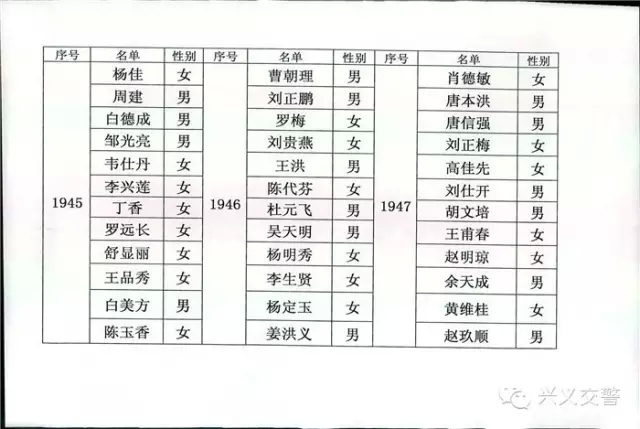 序号 名单 性别 序号 名单 性别 序号 名单 性别
杨佳 女 曹朝理 男 肖德敏 女
周建 男 刘正鹏 男 唐本洪 男
白德成 男 罗梅 女 唐信强 男
邹光亮 男 刘贵燕 女 刘正梅 女
韦仕丹 女 王洪 男 高佳先 女
李兴莲 女 陈代芬 女 刘仕开 男
1945 丁香 女 1946 杜元飞 男 1947 胡文培 男
罗远长 女 吴天明 男 王甫春 女
舒显丽 女 杨明秀 女 赵明琼 女
王品秀 女 李生贤 女 余天成 男
白美方 男 杨定玉 女 黄维桂 女
陈玉香 女 姜洪义 男 赵玖顺 男
兴义交警